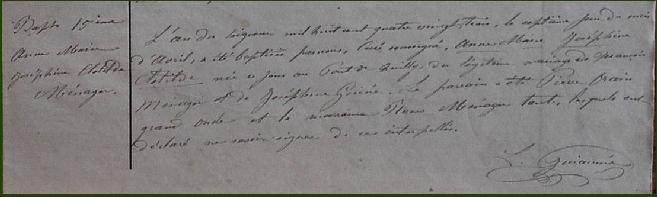 Bapt. 15ème
Anne Marie
Joséphine Clotilde
Ménager.
L'an du Seigneur mil huit cent quatre vingt trois, le septième jour du mois
d'Avril, a été baptisée par nous, Curé soussigné, Anne Marie Joséphine
Clotilde née ce jour au Pont de du légitime mariage de François
Ménager et de Joséphine Le parrain a été Pierre
grand oncle et la marraine Ménager tante, lesquels ont
déclaré ne savoir signer de ce interpellés.
L.